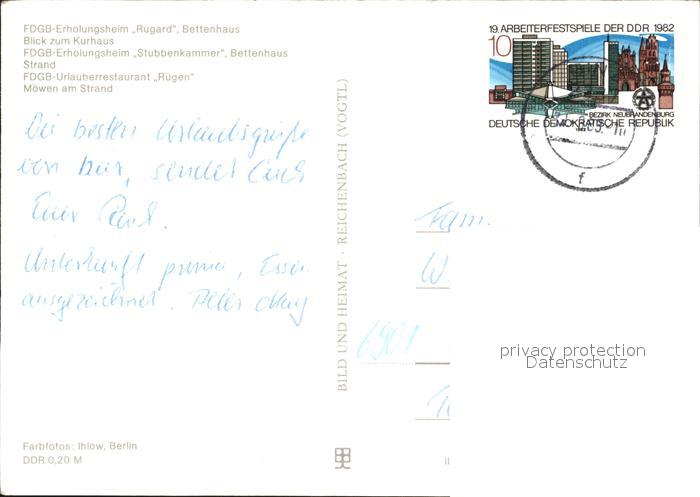 FDGB-Erholungsheim „Rugard", Bettenhaus
Blick zum Kurhaus
FDGB-Erholungsheim „Stubbenkammer", Bettenhaus
Strand
FDGB-Urlauberrestaurant „Rügen"
Möwen am Strand
19. ARBEITERFESTSPIELE DER DDR 1982
10
BEZIRK NEUBRANDENBURG
DEUTSCHE DEMOKRATISCHE REPUBLIK
f
Die besten Urlaubsgrüße
von hier, sendet Euch
Euer Paul.
Unterkunft prima, Essen
ausgezeichnet.
BILD UND HEIMAT · REICHENBACH (VOGTL)
Fam.
W.
6901
privacy protection
Datenschutz
Farbfotos: Ihlow, Berlin
DDR 0,20 M